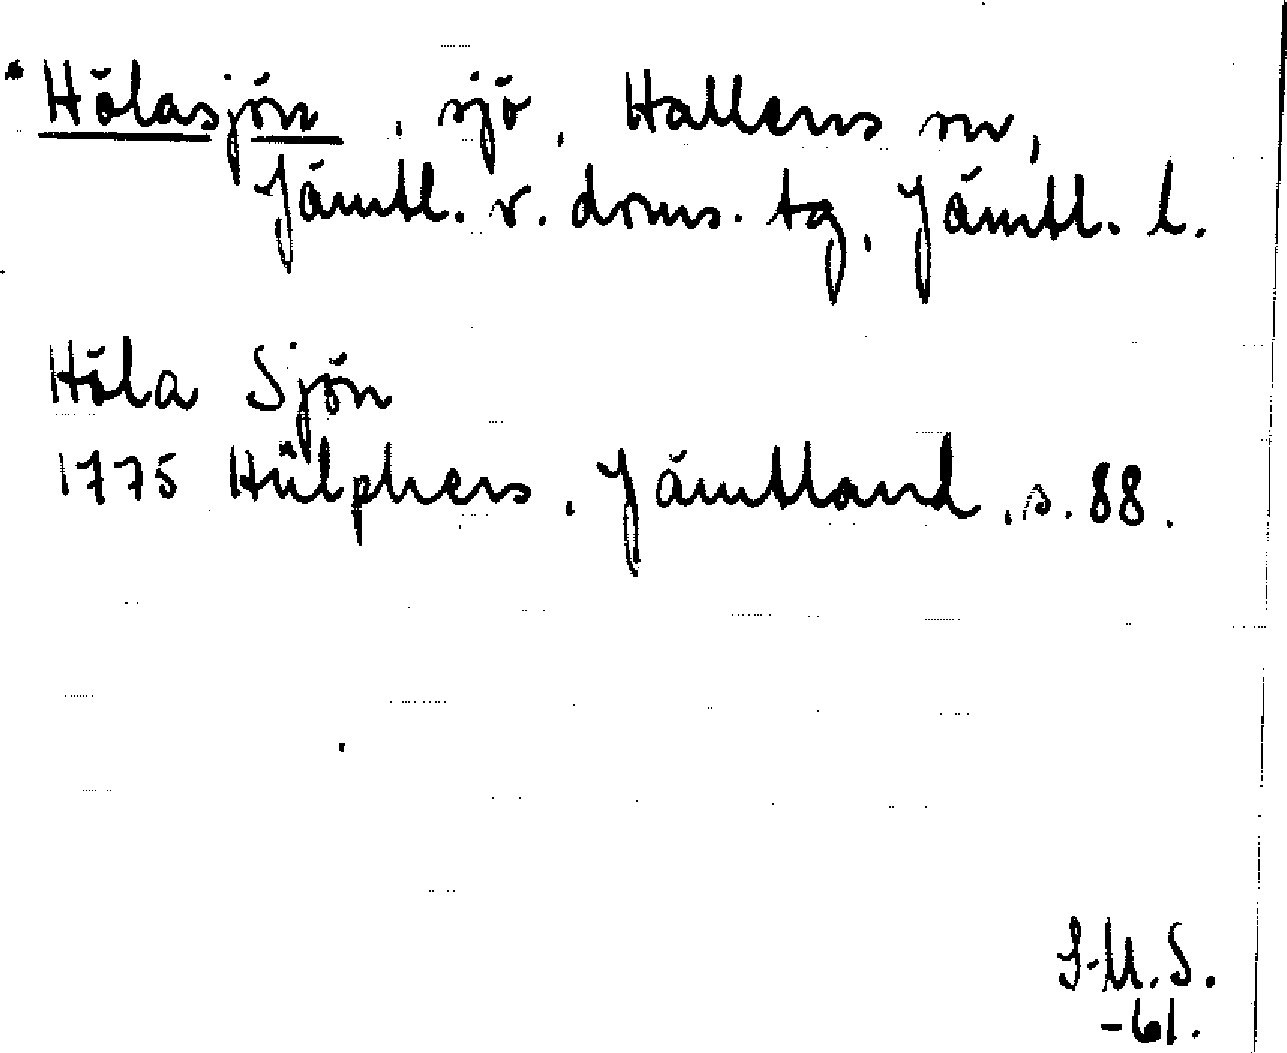 • Hölasjön, sjö, Hallens sn,
Jämtl. v. doms. tg, Jämtl. l.
Höla Sjön
1775 Hülphers, Jämtland, s. 88.
I-M.S.
-61.